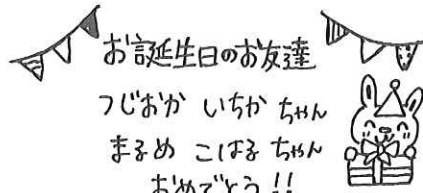 お誕生日のお友達
つじおか いちか ちゃん
まるめ こはる ちゃん
おめでとう!!